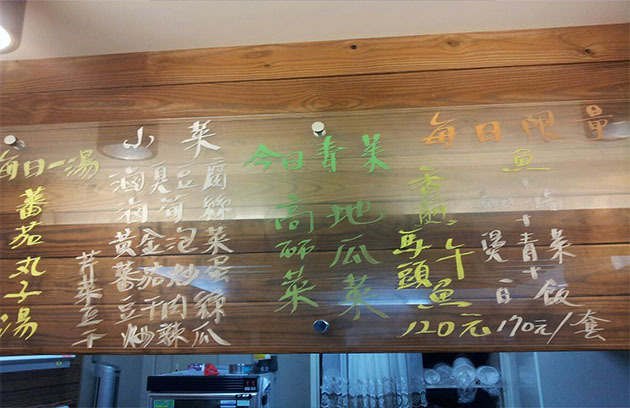 每日限量
魚
燙青菜
白飯
170元/套
香煎
午
馬頭魚
120元
今日青菜
地瓜菜
高 菜
小菜
滷臭豆腐
滷筍絲
黃金泡菜
蕃茄炒蛋
豆干肉絲
炒辣瓜
芥菜豆干
每日一湯
蕃茄丸子湯